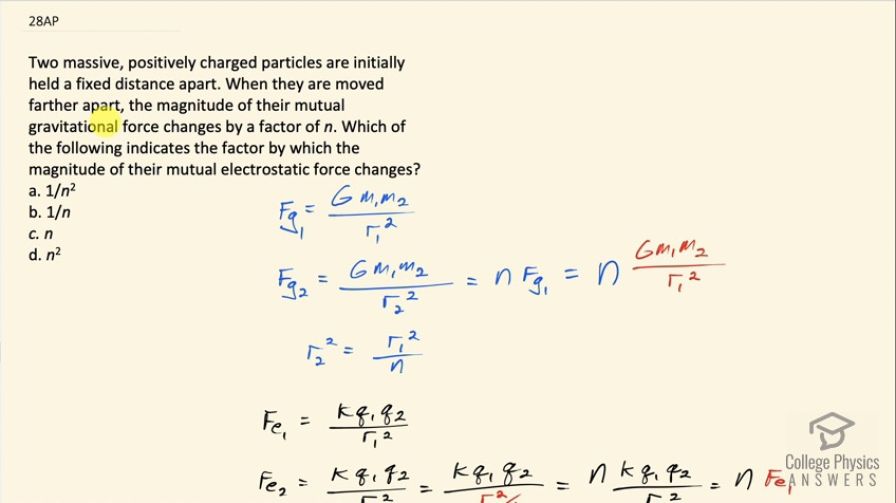 28AP
Two massive, positively charged particles are initially
held a fixed distance apart. When they are moved
farther apart, the magnitude of their mutual
gravitational force changes by a factor of n. Which of
the following indicates the factor by which the
magnitude of their mutual electrostatic force changes?
a. 1/n²
b. 1/n
c. n
d. n²
Fg₁ = G m₁m₂ / r₁²
Fg₂ = G m₁m₂ / r₂² = n Fg₁ = n G m₁m₂ / r₁²
r₂² = r₁² / n
Fe₁ = k q₁ q₂ / r₁²
Fe₂ = k q₁ q₂ / r₂² = k q₁ q₂ / r₁²/ = n k q₁ q₂ / r₁² = n Fe₁
College Physics
ANSWERS